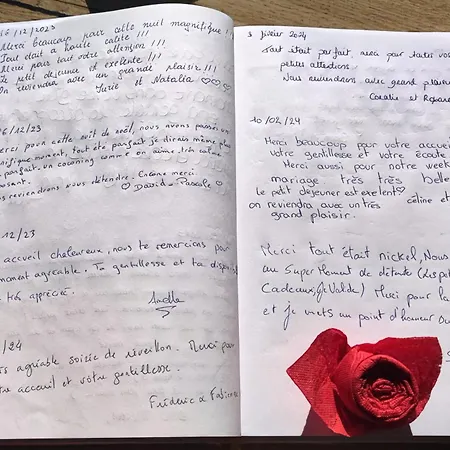 26/12/2023
Merci beaucoup pour cette nuit magnifique !!!
Tout était à haute qualité !!!
Merci pour tout votre attention !!!
Le petit dejeuner il exelente !!!
On reviendra avec un grande plaisir !!!
et Natalia ♡♡♡
26/12/23
Merci pour cette nuit de noël, nous avons passés un
magnifique moment, tout été parfait je dirais même plus
parfait. un cocooning comme on aime très calme
reposant.
Nous reviendrons nous détendre. Encore merci
♡ David - Pascale ♡
12/23
accueil chaleureux, nous te remercions pour
moment agréable. Ta gentillesse et ta
très apprécié.
/24
agréable soirée de réveillon. Merci pour
votre acceuil et votre gentillesse.
Fréderic &
3 février 2024
Tout était parfait, merci pour toutes vos
petites attentions.
Nous reviendrons avec grand plaisir
Coralie et
10/02/24
Merci beaucoup pour votre accueil
votre gentillesse et votre écoute
Merci aussi pour notre week
mariage très très belle
le petit dejeuner est exelent♡
on reviendra avec un très celine et
grand plaisir.
Merci tout était nickel, Nous
un Super Moment de détente (les petits
Cadeaux, Je Valide) Merci pour la
et je mets un point d'honneur au